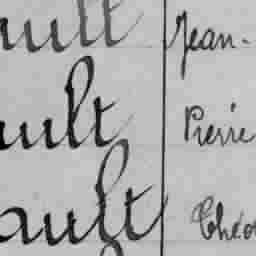 ault Jean-
ault Pierre
ault Théo